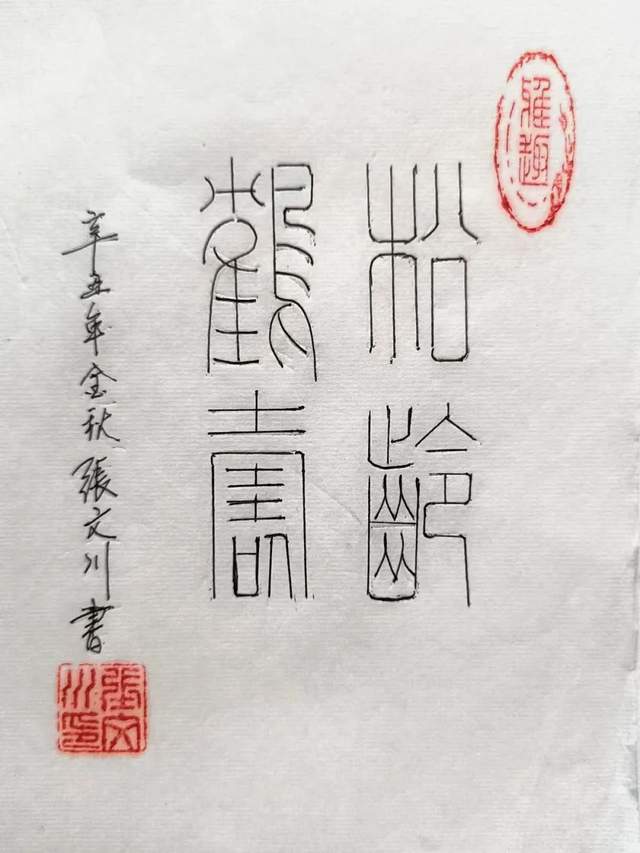 雅趣
松齡
鶴壽
辛丑年金秋張文川書
張文川印